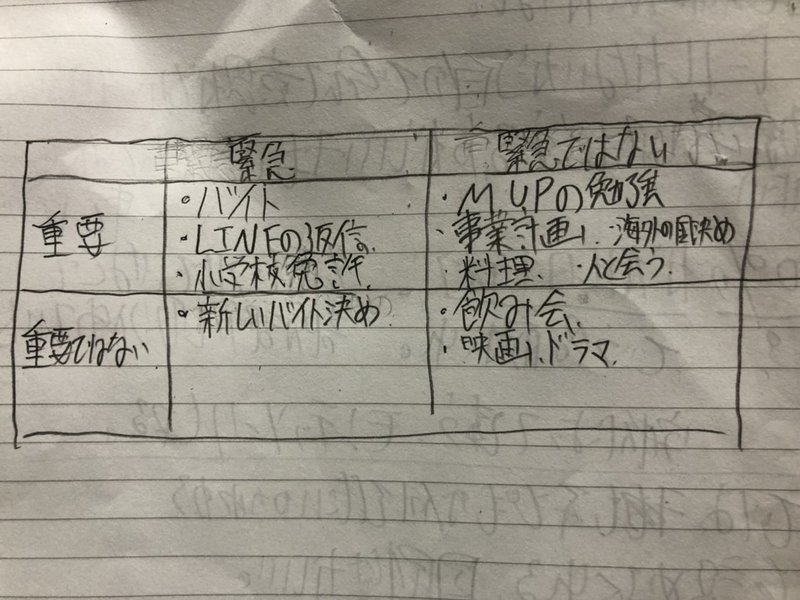 緊急 緊急ではない
重要
・バイト
・LINEの返信
・小学校免許
・MUPの勉強
・事業計画 ・海外の国決め
・料理 ・人と会う
重要ではない
・新しいバイト決め
・飲み会
・映画、ドラマ